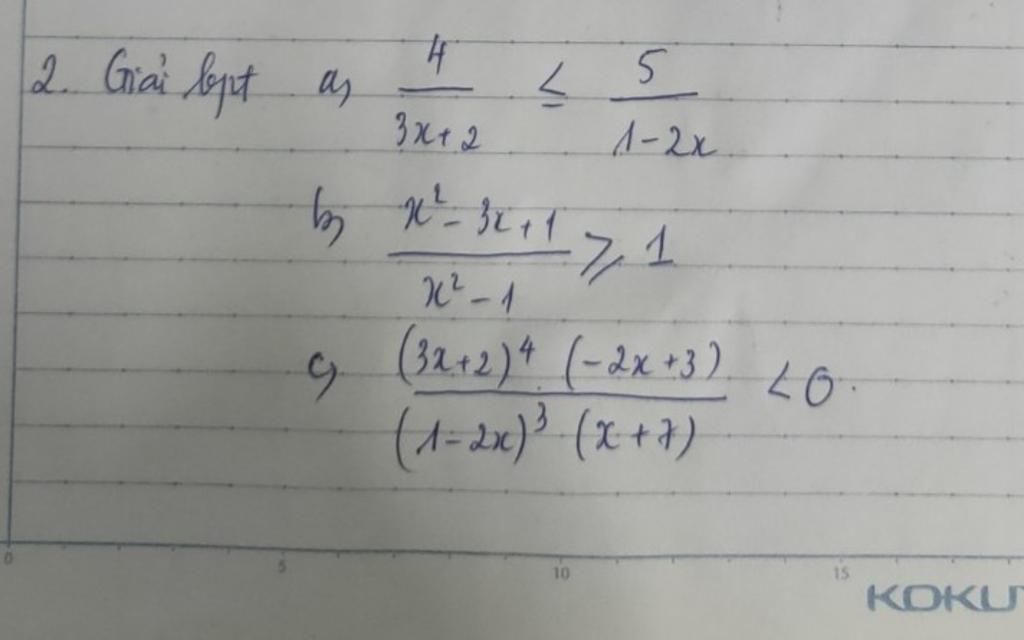 2. Giải bpt a) 4/(3x+2) ≤ 5/(1-2x)
b) (x²-3x+1)/(x²-1) ≥ 1
c) ((3x+2)⁴ (-2x+3))/((1-2x)³ (x+7)) < 0.
0 5 10 15
KOKU